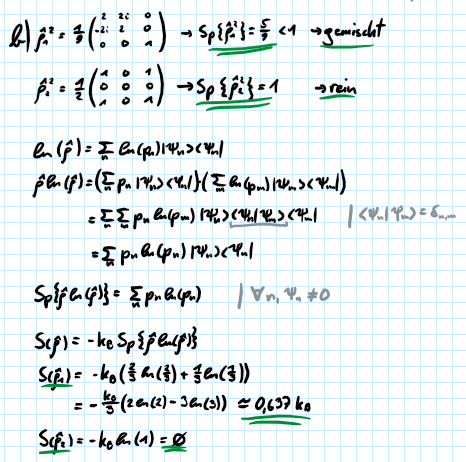 b) ρ̂₁² = 1/9 ( 2 2i 0 ; -2i 2 0 ; 0 0 1 ) → Sp{ρ̂₁²} = 5/9 < 1 → gemischt
ρ̂₂² = 1/2 ( 1 0 1 ; 0 0 0 ; 1 0 1 ) → Sp{ρ̂₂²} = 1 → rein
ln(ρ̂) = ∑ₙ ln(pₙ) |Ψₙ><Ψₙ|
ρ̂ ln(ρ̂) = (∑ₙ pₙ |Ψₙ><Ψₙ|)(∑ₘ ln(pₘ) |Ψₘ><Ψₘ|)
= ∑ₙ ∑ₘ pₙ ln(pₘ) |Ψₙ><Ψₙ|Ψₘ><Ψₘ| | <Ψₙ|Ψₘ> = δₙ,ₘ
= ∑ₙ pₙ ln(pₙ) |Ψₙ><Ψₙ|
Sp{ρ̂ ln(ρ̂)} = ∑ₙ pₙ ln(pₙ) | ∀n, Ψₙ ≠ 0
S(ρ̂) = -k_B Sp{ρ̂ ln(ρ̂)}
S(ρ̂₁) = -k_B (2/3 ln(2/3) + 1/3 ln(1/3))
= - k_B/3 (2 ln(2) - 3 ln(3)) ≃ 0,637 k_B
S(ρ̂₂) = -k_B ln(1) = Ø